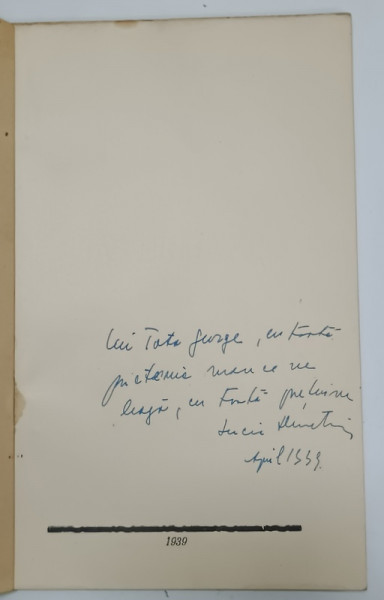 Lui Tata George, cu toată
prietenia mare ce ne
leagă, cu toată prețuirea
Lucia Demetrius
April 1939.
1939